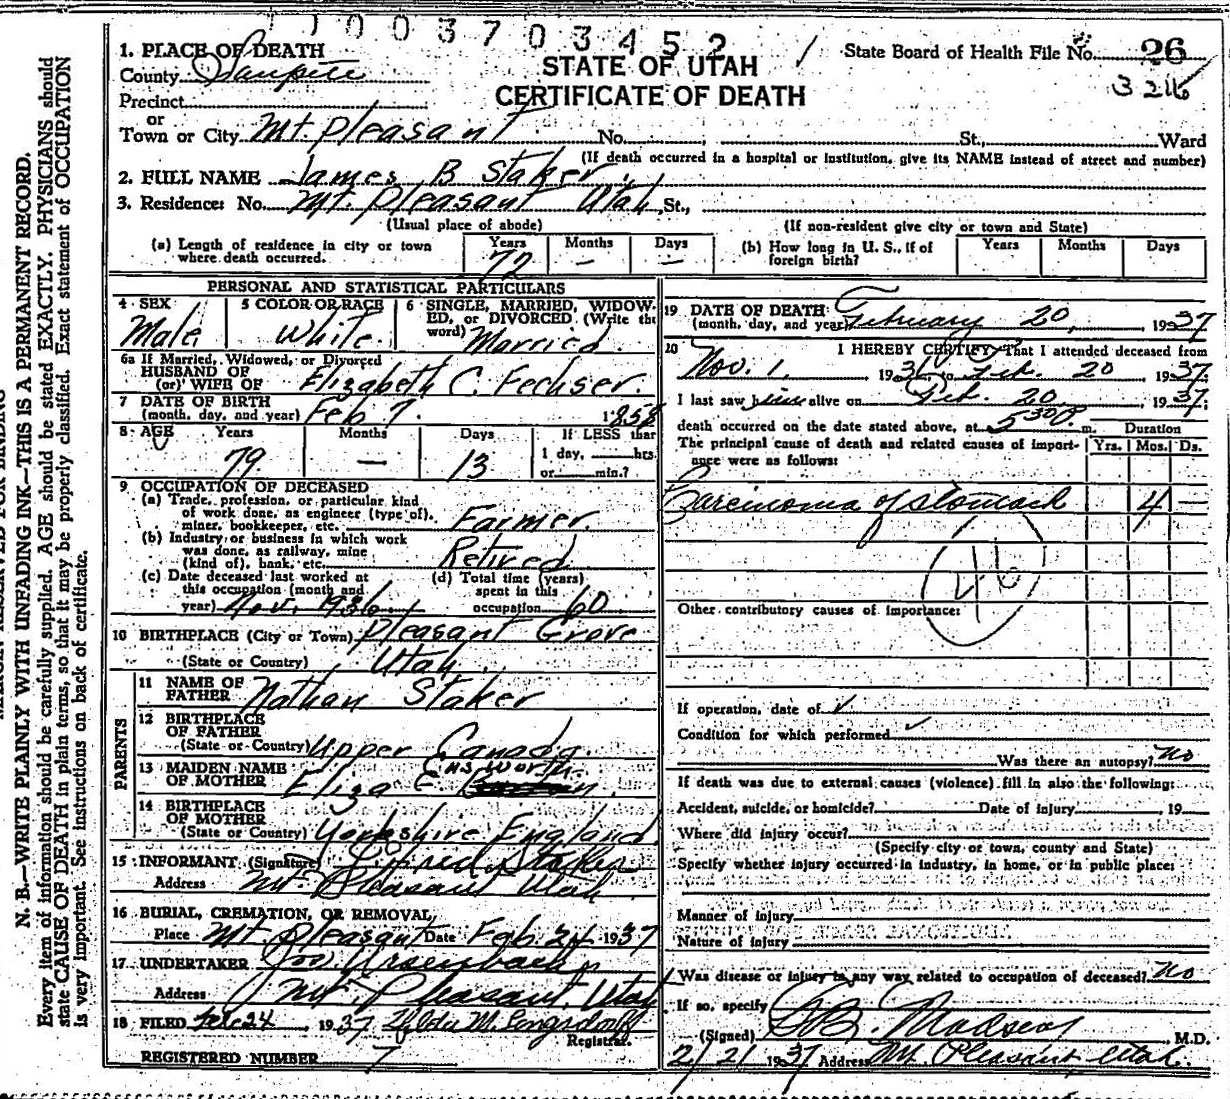 1003703452
1. PLACE OF DEATH
County Sanpete
STATE OF UTAH
CERTIFICATE OF DEATH
State Board of Health File No. 26
3216
Precinct
or
Town or City Mt. Pleasant No. St., Ward
(If death occurred in a hospital or institution, give its NAME instead of street and number)
2. FULL NAME James B Staker
3. Residence: No. Mt. Pleasant Utah St.,
(Usual place of abode) (If non-resident give city or town and State)
(a) Length of residence in city or town where death occurred. Years 72 Months — Days —
(b) How long in U. S., if of foreign birth? Years Months Days
PERSONAL AND STATISTICAL PARTICULARS
4 SEX Male
5 COLOR OR RACE White
6 SINGLE, MARRIED, WIDOWED, or DIVORCED (Write the word) Married
6a If Married, Widowed, or Divorced
HUSBAND OF
(or) WIFE OF Elizabeth C. Fechser.
7 DATE OF BIRTH
(month, day, and year) Feb 7. 1858
8 AGE Years 79 Months — Days 13 If LESS than
1 day, hrs.
or min.?
9 OCCUPATION OF DECEASED
(a) Trade, profession, or particular kind
of work done, as engineer (type of),
miner, bookkeeper, etc. Farmer.
(b) Industry or business in which work
was done, as railway, mine
(kind of), bank, etc. Retired
(c) Date deceased last worked at
this occupation (month and
year) Nov. 1936
(d) Total time (years)
spent in this
occupation 60
10 BIRTHPLACE (City or Town) Pleasant Grove
(State or Country) Utah
PARENTS
11 NAME OF
FATHER Nathan Staker
12 BIRTHPLACE
OF FATHER
(State or Country) Upper Canada.
13 MAIDEN NAME
OF MOTHER Eliza C Cusworth.
14 BIRTHPLACE
OF MOTHER
(State or Country) Yorkshire England
15 INFORMANT (Signature) Staker
Address Mt. Pleasant Utah
16 BURIAL, CREMATION, OR REMOVAL,
Place Mt. Pleasant Date Feb. 24 1937
17 UNDERTAKER
Address Mt. Pleasant, Utah
18 FILED Feb 24, 1937 Hilda M. Longsdorf
Registrar.
REGISTERED NUMBER 7
19 DATE OF DEATH
(month, day, and year) February 20, 1937
20 I HEREBY CERTIFY, That I attended deceased from
Nov. 1. 1936 to Feb. 20 1937
I last saw him alive on Feb. 20, 1937
death occurred on the date stated above, at 5:30 P. m. Duration
The principal cause of death and related causes of importance were as follows: Yrs. Mos. Ds.
Carcinoma of stomach 4 —
46
Other contributory causes of importance:
If operation, date of ✓
Condition for which performed ✓
Was there an autopsy? No
If death was due to external causes (violence) fill in also the following:
Accident, suicide, or homicide? Date of injury 19
Where did injury occur?
(Specify city or town, county and State)
Specify whether injury occurred in industry, in home, or in public place:
Manner of injury
Nature of injury
Was disease or injury in any way related to occupation of deceased? No
If so, specify
(Signed) Madsen M.D.
2/21 1937 Address Mt Pleasant, Utah.
N. B.—WRITE PLAINLY WITH UNFADING INK—THIS IS A PERMANENT RECORD.
Every item of information should be carefully supplied. AGE should be stated EXACTLY. PHYSICIANS should
state CAUSE OF DEATH in plain terms, so that it may be properly classified. Exact statement of OCCUPATION
is very important. See instructions on back of certificate.